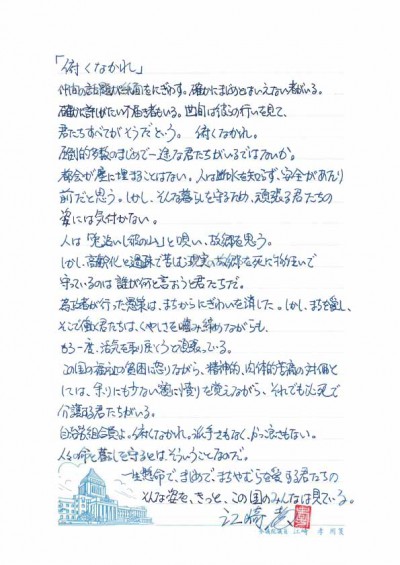 「俯くなかれ」
仲間の話題が紙面をにぎわす。確かにまじめとはいえない者がいる。
確かに許しがたい不届き者もいる。世間は彼の行いを見て、
君たちすべてがそうだという。俯くなかれ。
圧倒的多数のまじめで一途な君たちがいるではないか。
都会が塵に埋まることはない。人は断水を知らず、安全があたり
前だと思う。しかし、そんな暮らしを守るため、頑張る君たちの
姿には気付かない。
人は「兎追いし彼の山」と唄い、故郷を思う。
しかし、高齢化と過疎で苦しむ現実の故郷を死に物狂いで
守っているのは誰が何と言おうと君たちだ。
為政者が行った愚策は、まちからにぎわいを消した。しかし、まちを愛し、
そこで働く君たちは、くやしさを噛み締めながらも、
もう一度、活気を取り戻そうと頑張っている。
この国の福祉の貧困に怒りながら、精神的、肉体的苦痛の対価と
しては、余りにも少ない額に憤りを覚えながら、それでも必死で
介護する君たちがいる。
自治労組合員よ。俯くなかれ。派手さもなく、かっこ良さもない。
人々の命と暮しを守るとは、そういうことなのだ。
一生懸命で、まじめで、まちやむらを愛する君たちの
そんな姿を、きっと、この国のみんなは見ている。
江崎孝
参議院議員 江崎 孝 用箋